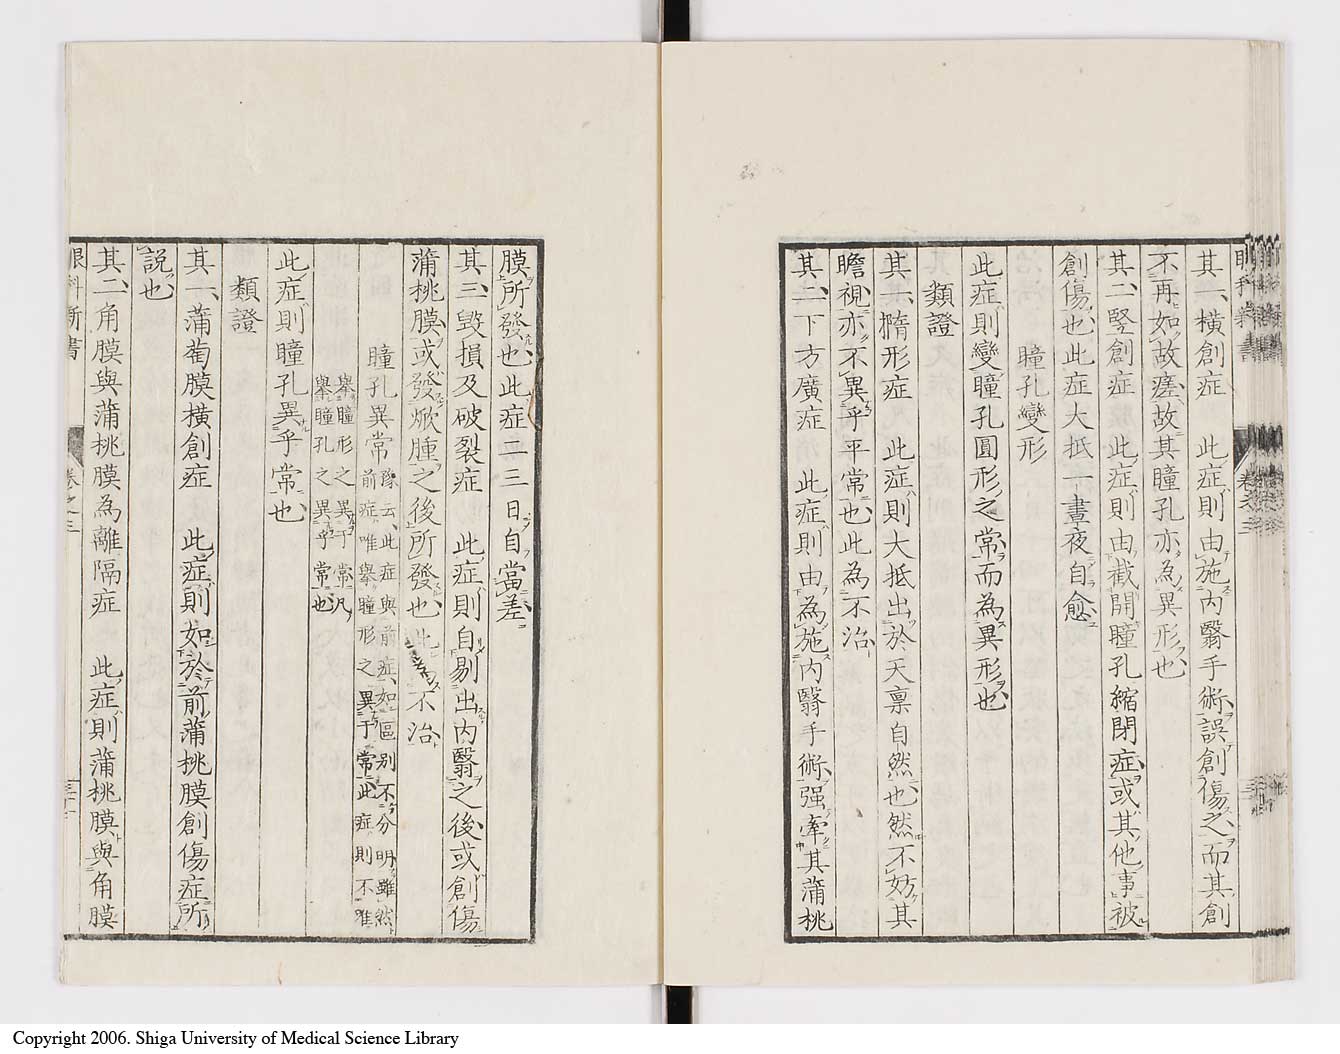 其一、橫創症　此症則由施內翳手術誤創傷之而其創
不再如故瘥、故其瞳孔亦為異形也
其二、竪創症　此症則由截開瞳孔縮閉症或其他事被
創傷也、此症大抵一晝夜自愈
瞳孔變形
此症則變瞳孔圓形之常而為異形也
類證
其一、撱形症　此症則大抵出於天禀自然也、然不妨其
瞻視亦不異乎平常也、此為不治
其二、下方廣症　此症則由為施內翳手術强牽其蒲桃
膜所發也、此症二三日自當差
其三、毀損及破裂症　此症則自剔出內翳之後或創傷
蒲桃膜或發焮腫之後所發也、此為不治
瞳孔異常　豫云、此症與前症、如區別不分明雖然
前症唯擧瞳形之異于常此症則不唯
擧瞳形之異于常凡
擧瞳孔之異乎常也
此症則瞳孔異乎常也
類證
其一、蒲萄膜橫創症　此症則如於前蒲桃膜創傷症所
說也
其二、角膜與蒲桃膜為離隔症　此症則蒲桃膜與角膜
眼科新書　卷之三　三十一
Copyright 2006. Shiga University of Medical Science Library